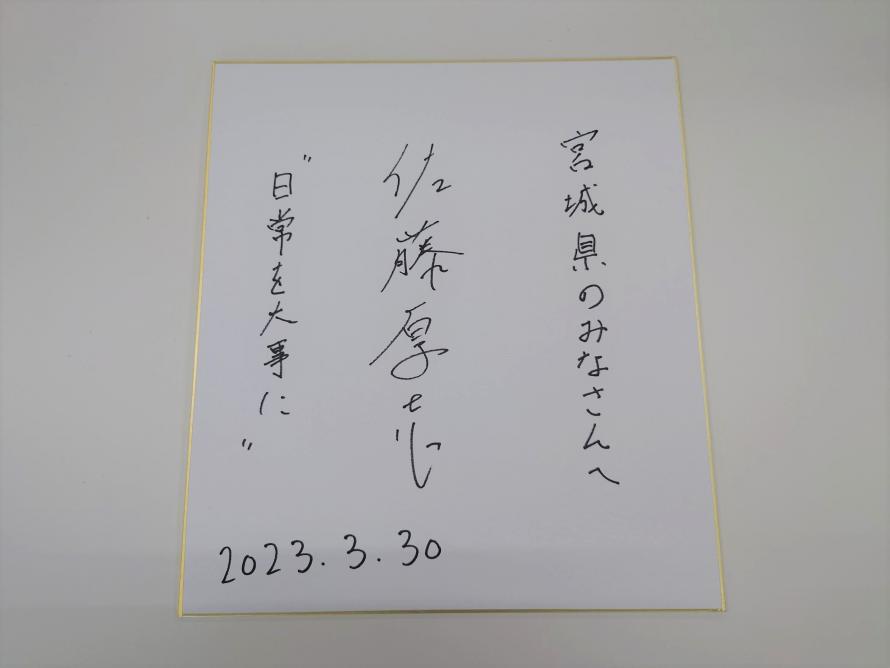 宮城県のみなさんへ
佐藤厚志
"日常を大事に"
2023.3.30